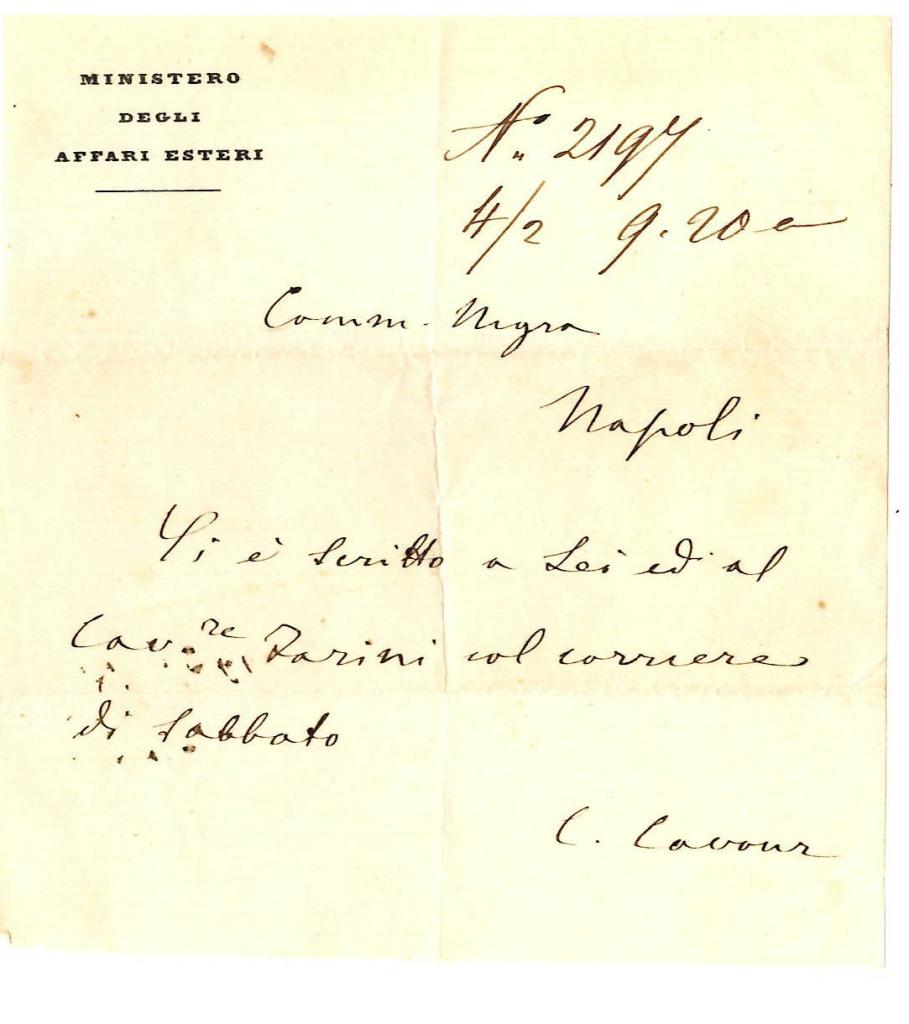 MINISTERO
DEGLI
AFFARI ESTERI
N.° 2197
4/2 9.20 a
Comm. Nigra
Napoli
Si è scritto a Lei ed al
Cav.re Farini col corriere
di Sabbato
C. Cavour